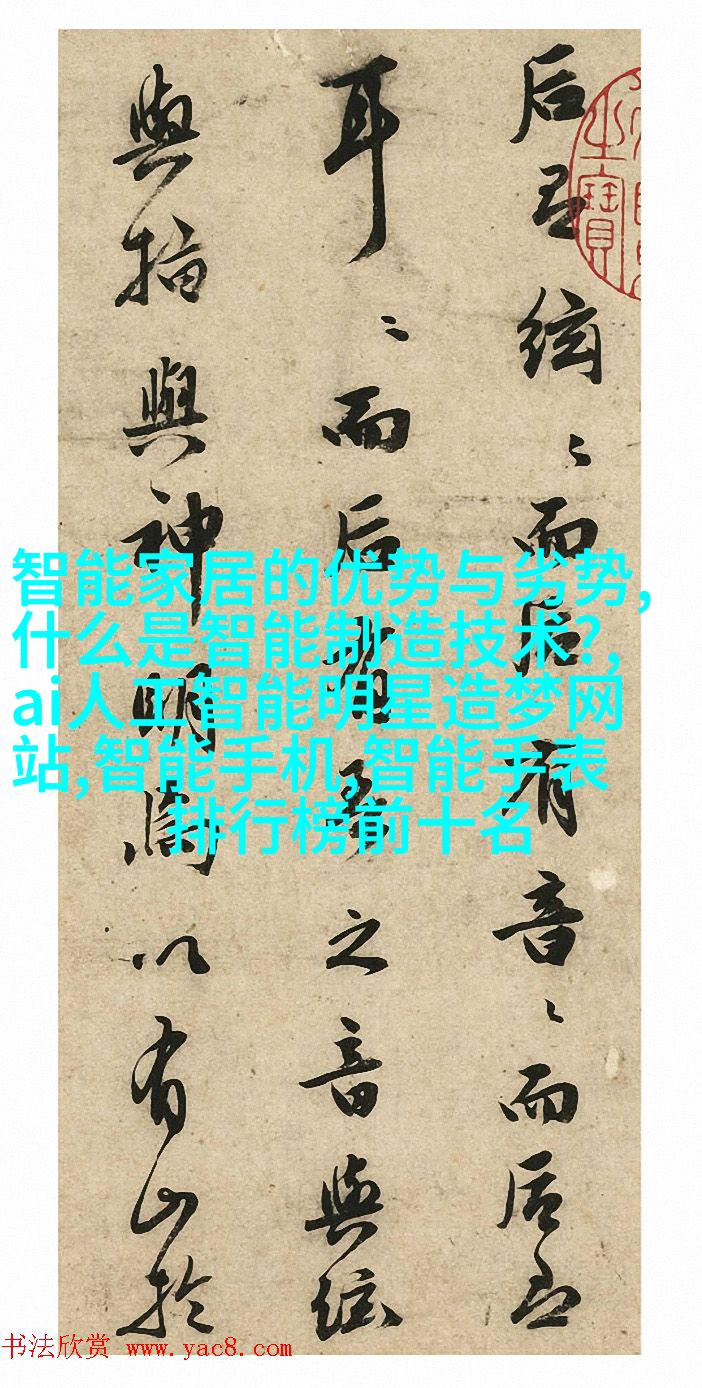 后絃〻而后有音〻而后
耳〻而后之音與絃
與指與神明以有山於
之寶
智能家居的优势与劣势,
什么是智能制造技术?,
ai人工智能明星造梦网
站,智能手机,智能手表
排行榜前十名
书法欣赏 www.yac8.com